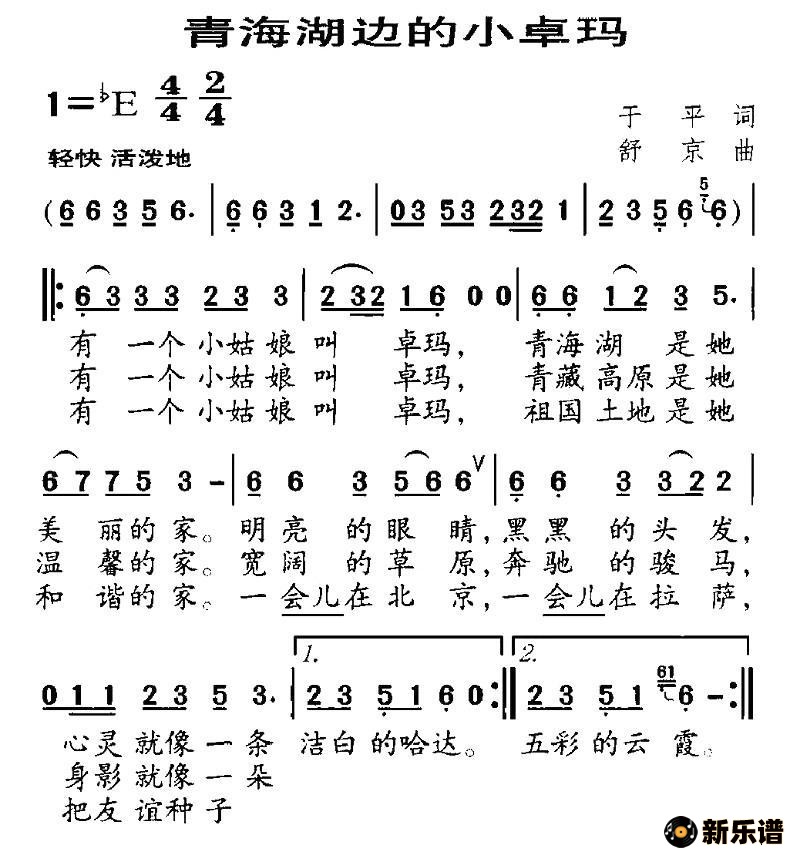 青海湖边的小卓玛
1=♭E 4/4 2/4
于 平 词
轻快 活泼地
舒 京 曲
(6 6 3 5 6. | 6 6 3 1 2. | 03 53 2321 | 2 3 5 6 5 6) |
‖: 6 3 3 3 2 3 3 | 2 32 1 6 0 0 | 6 6 1 2 3 5. |
有 一个 小姑 娘 叫 卓玛, 青海 湖 是 她
有 一个 小姑 娘 叫 卓玛, 青藏 高原 是 她
有 一个 小姑 娘 叫 卓玛, 祖国 土地 是 她
6 7 7 5 3 – | 6 6 3 5 6 6 V | 6 6 3 3 2 2 |
美 丽的 家。 明 亮 的 眼 睛, 黑 黑 的 头 发,
温 馨的 家。 宽 阔 的 草 原, 奔 驰 的 骏 马,
和 谐的 家。 一 会儿 在 北 京, 一 会儿 在 拉 萨,
1. 2.
0 1 1 2 3 5 3. | 2 3 5 1 6 0 :‖ 2 3 5 1 61 6 – :‖
心灵 就像 一 条 洁白 的哈 达。 五彩 的云 霞。
身影 就像 一 朵
把友 谊种 子
新乐谱